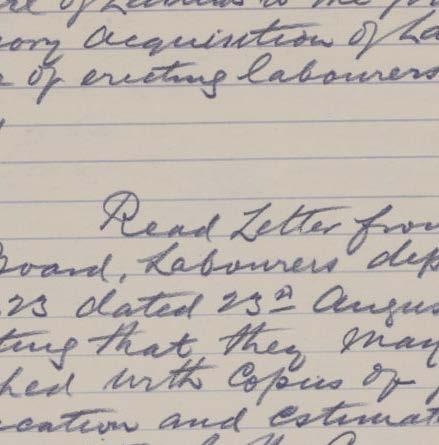 of Lands to the
ory acquisition of La
of erecting labourers
Read Letter from
Board, Labourers dep
23 dated 23rd Augus
ting that they may
hed with Copies of
cation and estimat